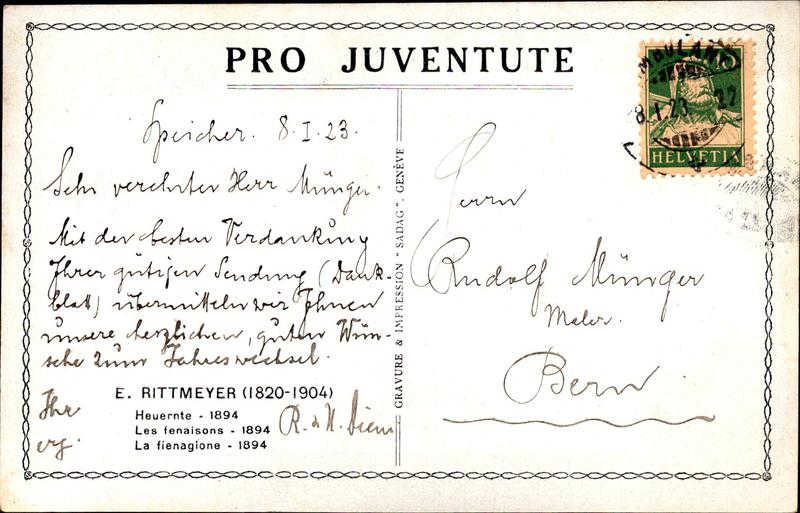 PRO JUVENTUTE
Speicher. 8.I.23.
Sehr verehrter Herr Münger.
Mit der besten Verdankung
Ihrer gütigen Sendung (Dank-
blatt) übermitteln wir Ihnen
unsere herzlichen, guten Wün-
sche zum Jahreswechsel.
Ihr
erg.
R. & N. Diem
E. RITTMEYER (1820-1904)
Heuernte - 1894
Les fenaisons - 1894
La fienagione - 1894
GRAVURE & IMPRESSION "SADAG", GENÈVE
HELVETIA
8.I.23
Herrn
Rudolf Münger
Maler.
Bern